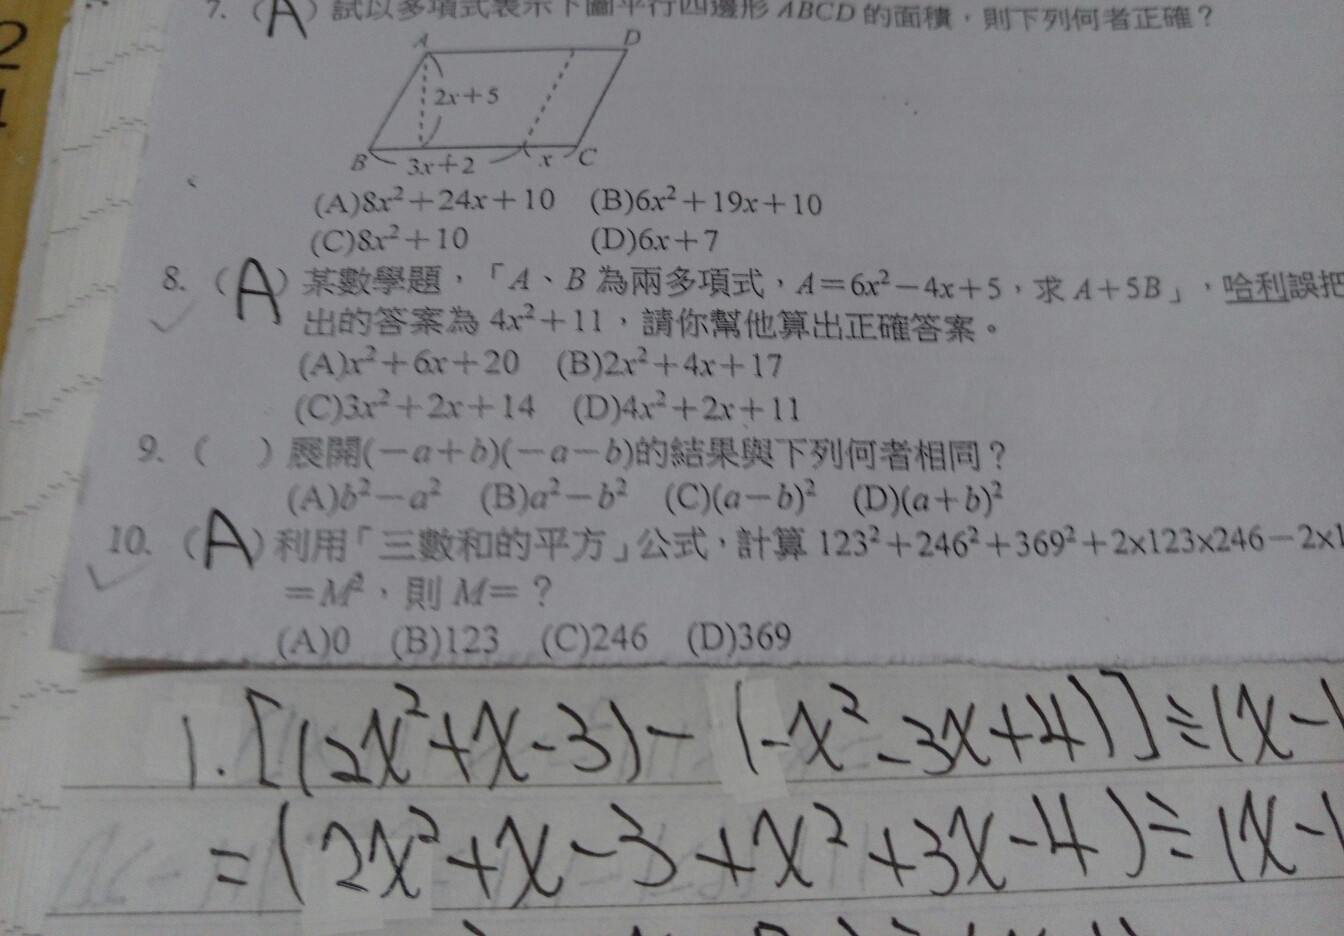 2
1
7. (A) 試以多項式表示下圖平行四邊形ABCD的面積,則下列何者正確?
A D
2x+5
B 3x+2 x C
(A)8x²+24x+10 (B)6x²+19x+10
(C)8x²+10 (D)6x+7
8. (A) 某數學題,「A、B為兩多項式,A=6x²-4x+5,求A+5B」,哈利誤把
出的答案為4x²+11,請你幫他算出正確答案。
(A)x²+6x+20 (B)2x²+4x+17
(C)3x²+2x+14 (D)4x²+2x+11
9. ( ) 展開(-a+b)(-a-b)的結果與下列何者相同?
(A)b²-a² (B)a²-b² (C)(a-b)² (D)(a+b)²
10. (A) 利用「三數和的平方」公式,計算123²+246²+369²+2x123x246-2x1
=M²,則M=?
(A)0 (B)123 (C)246 (D)369
1. [(2x²+x-3)-(-x²-3x+4)]÷(x-1
=(2x²+x-3+x²+3x-4)÷(x-1